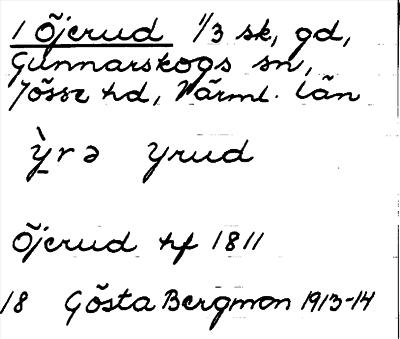 1 Öjerud 1/3 sk, gd,
Gunnarskogs sn,
Jösse hd, Värml. län
ỳ̠rə yrud
Öjerud hf 1811
18 Gösta Bergman 1913-14